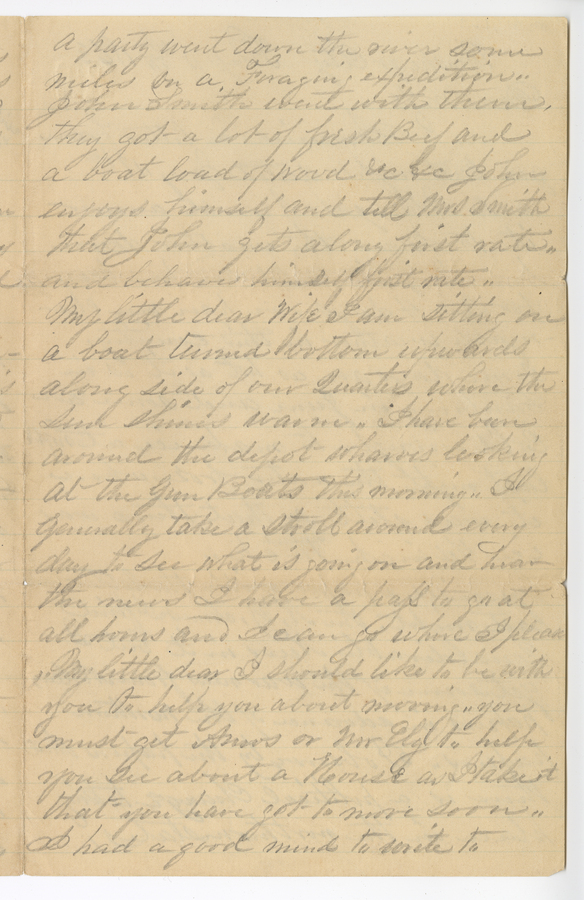 a party went down the river some
miles on a Foraging expedition "
John Smith went with them.
they got a lot of fresh Beef and
a boat load of Wood &c &c John
enjoys himself and tell Mrs. Smith
that John gets along first rate "
and behaves himself first rate "
My little dear Wife I am sitting on
a boat turned bottom upwards
along side of our Quarters where the
sun shines warm " I have been
around the depot wharves looking
at the Gun Boats this morning " I
Generally take a stroll around every
day to see what is going on and hear
the news I have a pass to go at
all hours and I can go where I please
" My little dear I should like to be with
you to help you about moving " you
must get Amos or Mr Ely to help
you see about a House as I take it
that you have got to move soon "
I had a good mind to write to